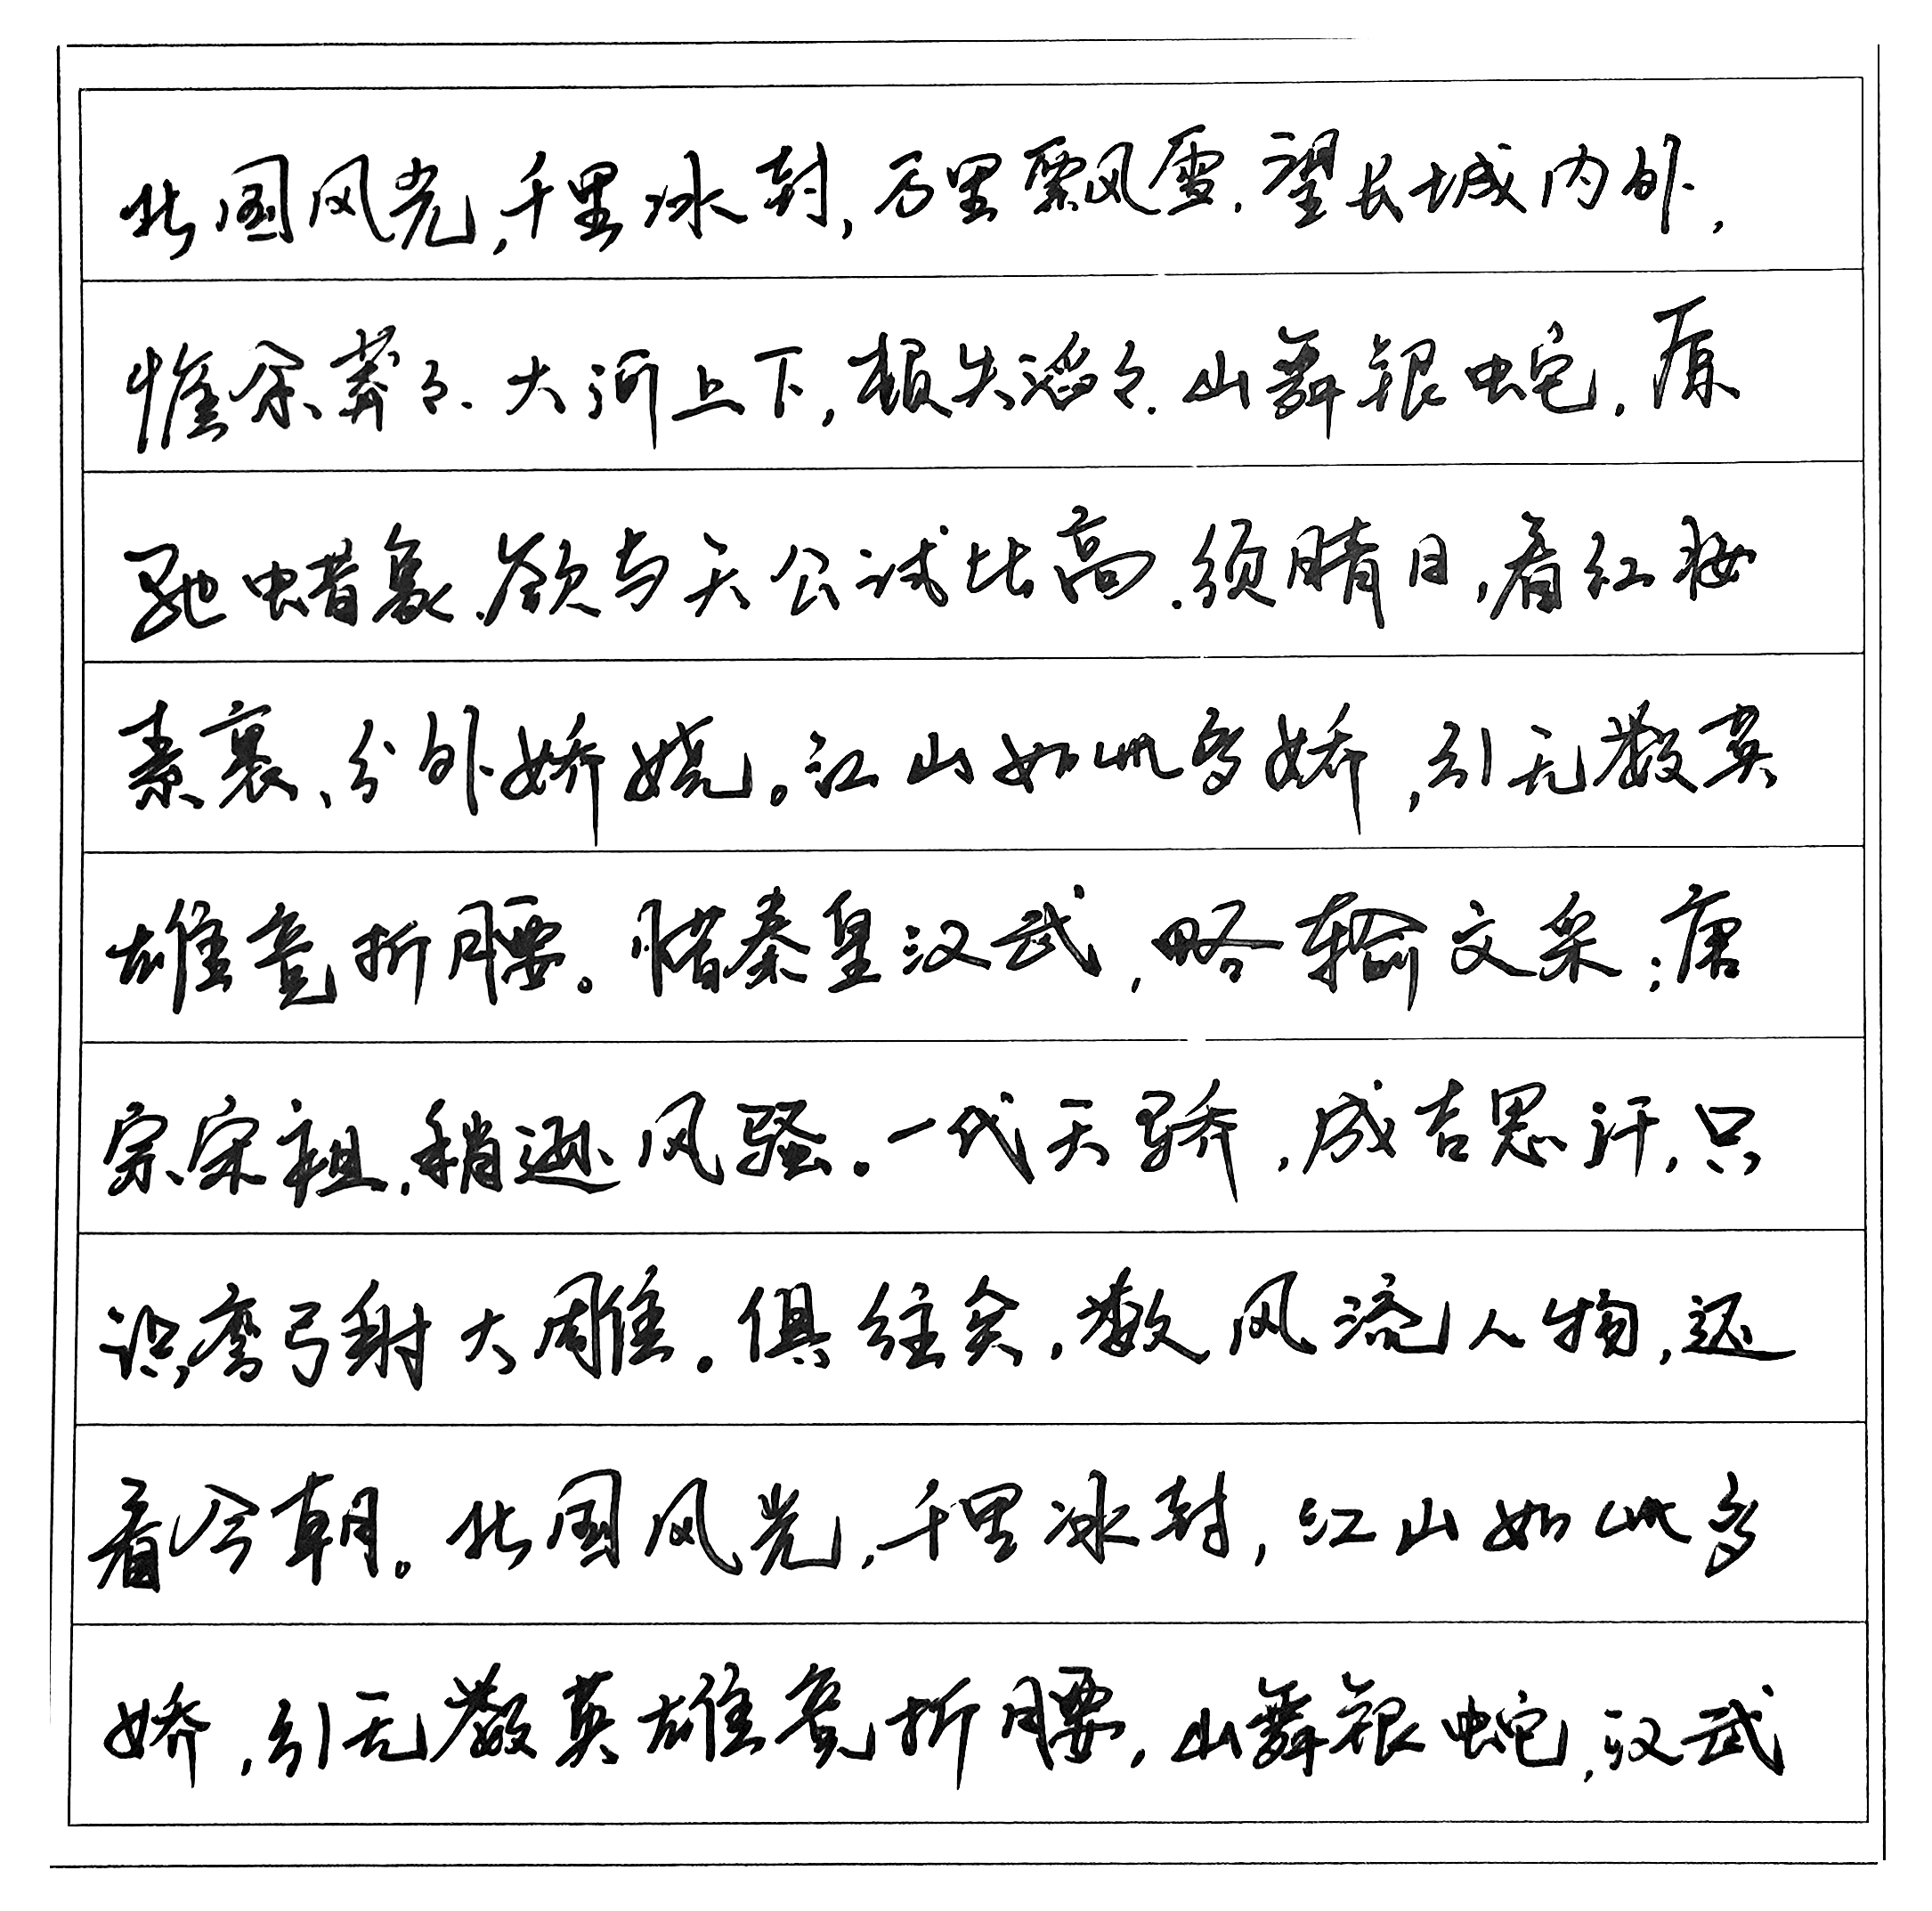 北国风光,千里冰封,万里飘雪.望长城内外,
惟余莽々.大河上下,顿失滔々.山舞银蛇,原
驰蜡象.欲与天公试比高.须晴日,看红妆
素裹、分外娇娆。江山如此多娇,引无数英
雄竞折腰。惜秦皇汉武,略输文采;唐
宗宋祖,稍逊风骚.一代天骄,成吉思汗,只
识弯弓射大雕.俱往矣,数风流人物,还
看今朝。北国风光,千里冰封,江山如此多
娇,引无数英雄竞折腰,山舞银蛇,汉武